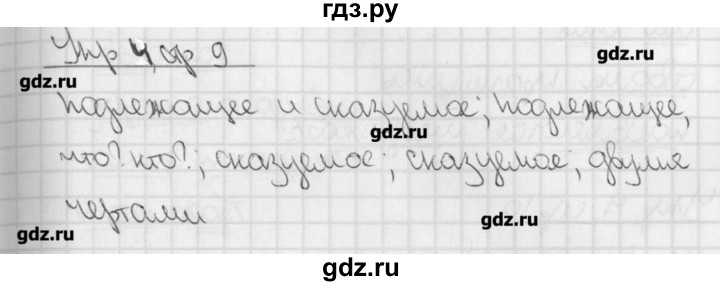 гдз.ру
Упр 4, стр 9
gdz.ru
gdz.ru
подлежащее и сказуемое; подлежащее,
gdz.ru
что? кто?; сказуемое; сказуемое; двумя
чертами
gdz.ru
gdz.ru
gdz.ru